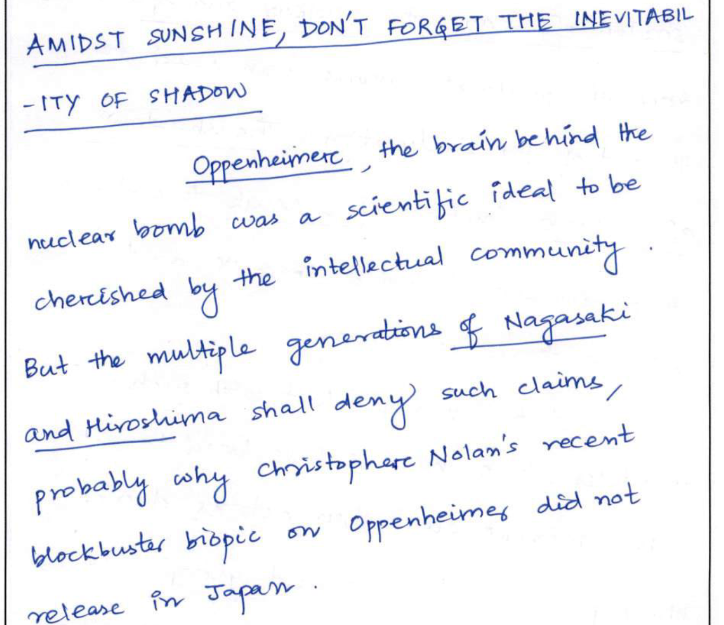 AMIDST SUNSHINE, DON'T FORGET THE INEVITABIL
-ITY OF SHADOW
Oppenheimer, the brain behind the
nuclear bomb was a scientific ideal to be
cherished by the intellectual community.
But the multiple generations of Nagasaki
and Hiroshima shall deny such claims,
probably why Christopher Nolan's recent
blockbuster biopic on Oppenheimer did not
release in Japan.